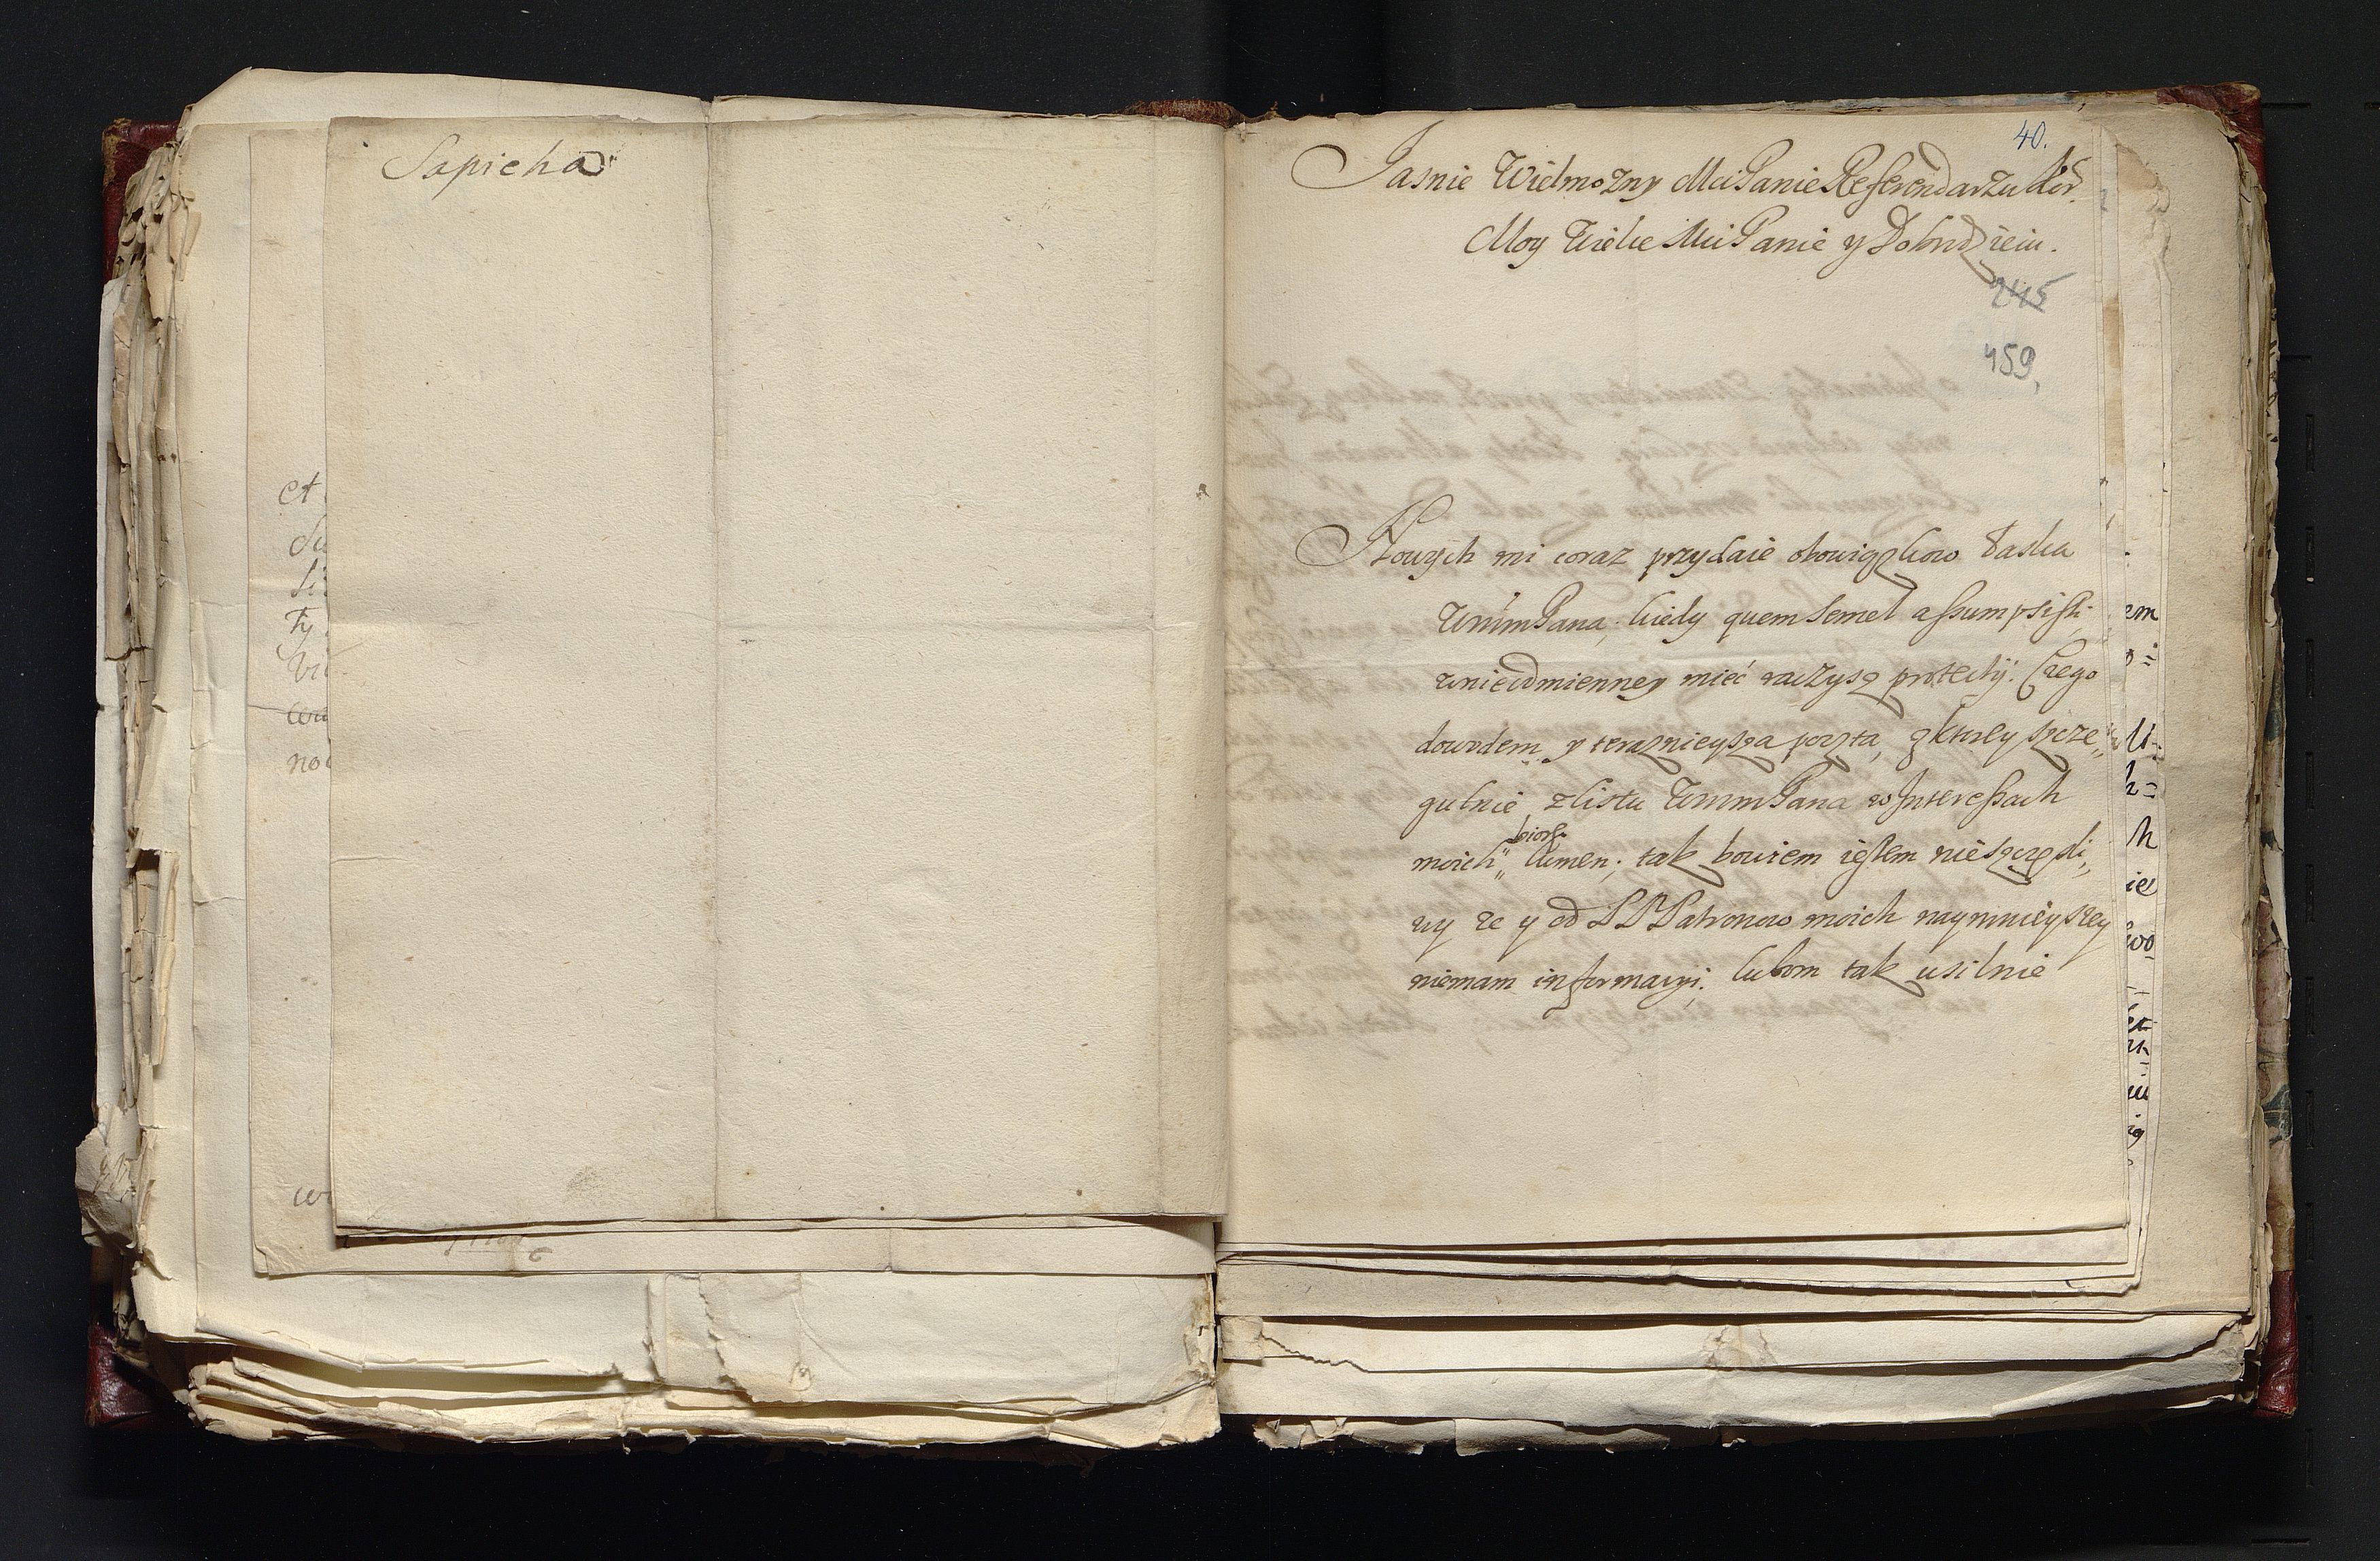 Sapieha
et
Su
Ty
no
40.
Jasnie Wielmozny Mci Panie Referendarzu Kor.
Moy Wielce Mci Panie y Dobrodzieiu.
245
459,
Nowych mi coraz przydaie obowiązkow Łaska
WmmPana, kiedy quem semel assumpsisti
wnieodmienney mieć raczysz protekcyi. Czego
dowodem y teraznieysza poczta, z ktorey szcze„
gulnie z listu WmmPana w Interessach
moich„ biorę lumen; tak bowiem iestem nieszczęśli„
wy ze y od PP Patronow moich naymnieyszey
niemam informacyi. lubom tak usilnie
em
h=
h
ie
wo